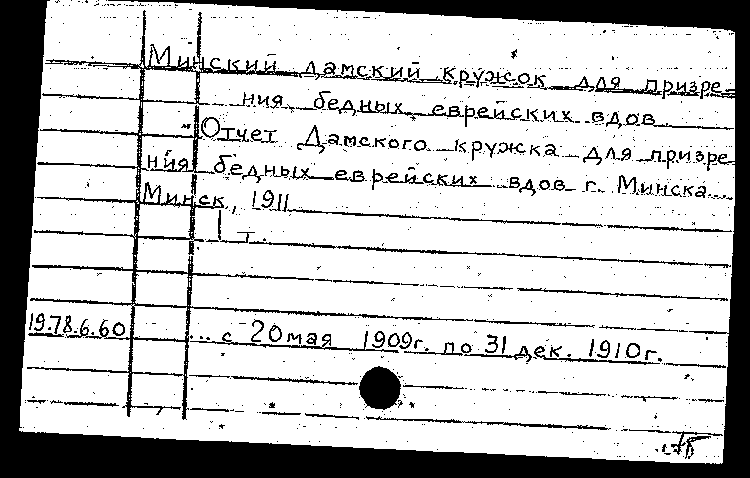 Минский дамский кружок для призре-
ния бедных еврейских вдов
Отчет Дамского кружка для призре
ния бедных еврейских вдов г. Минска...
Минск, 1911
1 т.
19.78.6.60 ... с 20 мая 1909г. по 31 дек. 1910г.